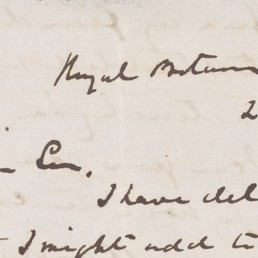 Royal Botan
2
Sir,
I have del
I might add to